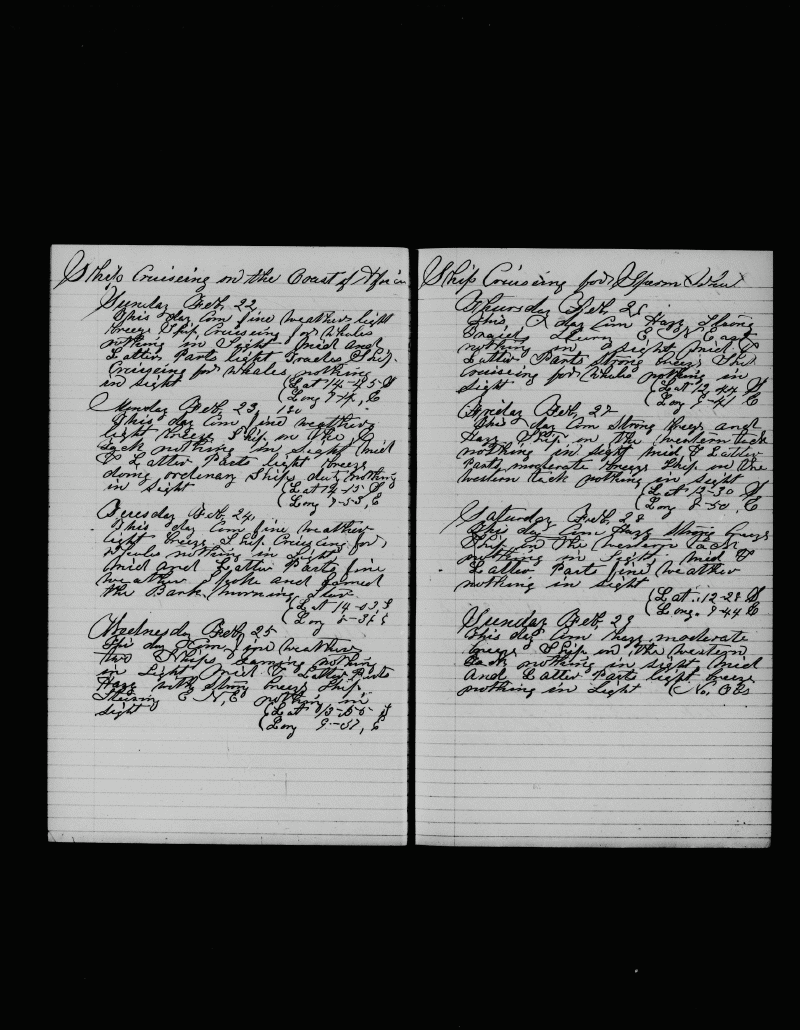 Ship Cruiseing on the Coast of Africa
Sunday Feb, 22
This day Com fine weather light
breeze Ship Cruseing for Whales
nothing in Sight mid and
Latter Parts light Ship
Cruiseing for whales nothing
in sight (Lat 14 S
(Long E
Monday Feb, 23,
This day Com fine weather
light breeze Ship in the
tack nothing in sight mid
& Latter Parts light breeze
doing ordenary Ships duty nothing
in sight (Lat 14-15 S
(Long 8-53, E
Teresday Feb, 24,
This day Com fine weather
light breeze Ship Cruseing for
Whales nothing in Sight
mid and Latter Parts fine
weather and
the morning
(Lat 14-03, S
(Long
Wednesday Feb, 25
This day Com fine weather
two Ships nothing
in Sight mid & Latter Parts
Haze with strong breeze Ship
Stering E N, E nothing in
sight (Lat 13-55 S
(Long 9-57, E
Ship Cruiseing for Sparm
Thursday Feb,
This day Com Haze Strong
East
nothing in sight mid &
Latter Parts strong breeze Ship
Cruiseing for Whales nothing in
sight (Lat 12 44 S
(Long 9-41 E
Friday Feb,
This day Com Strong breeze and
Haze Ship in the western tack
nothing in sight mid & Latter
Parts moderate breeze Ship in the
western tack nothing in sight
(Lat 12-30 S
(Long 8-50, E
Saturday Feb, 28
This day Com Haze Strong breeze
Ship in the western tack
nothing in sight mid &
Latter Part fine weather
nothing in sight
(Lat. 12-28 S
(Long. 9-44 E
Sunday Feb, 29
This day Com haze moderate
breeze Ship in the western
tack nothing in sight mid
and Latter Parts light breeze
nothing in Sight (No, Obs